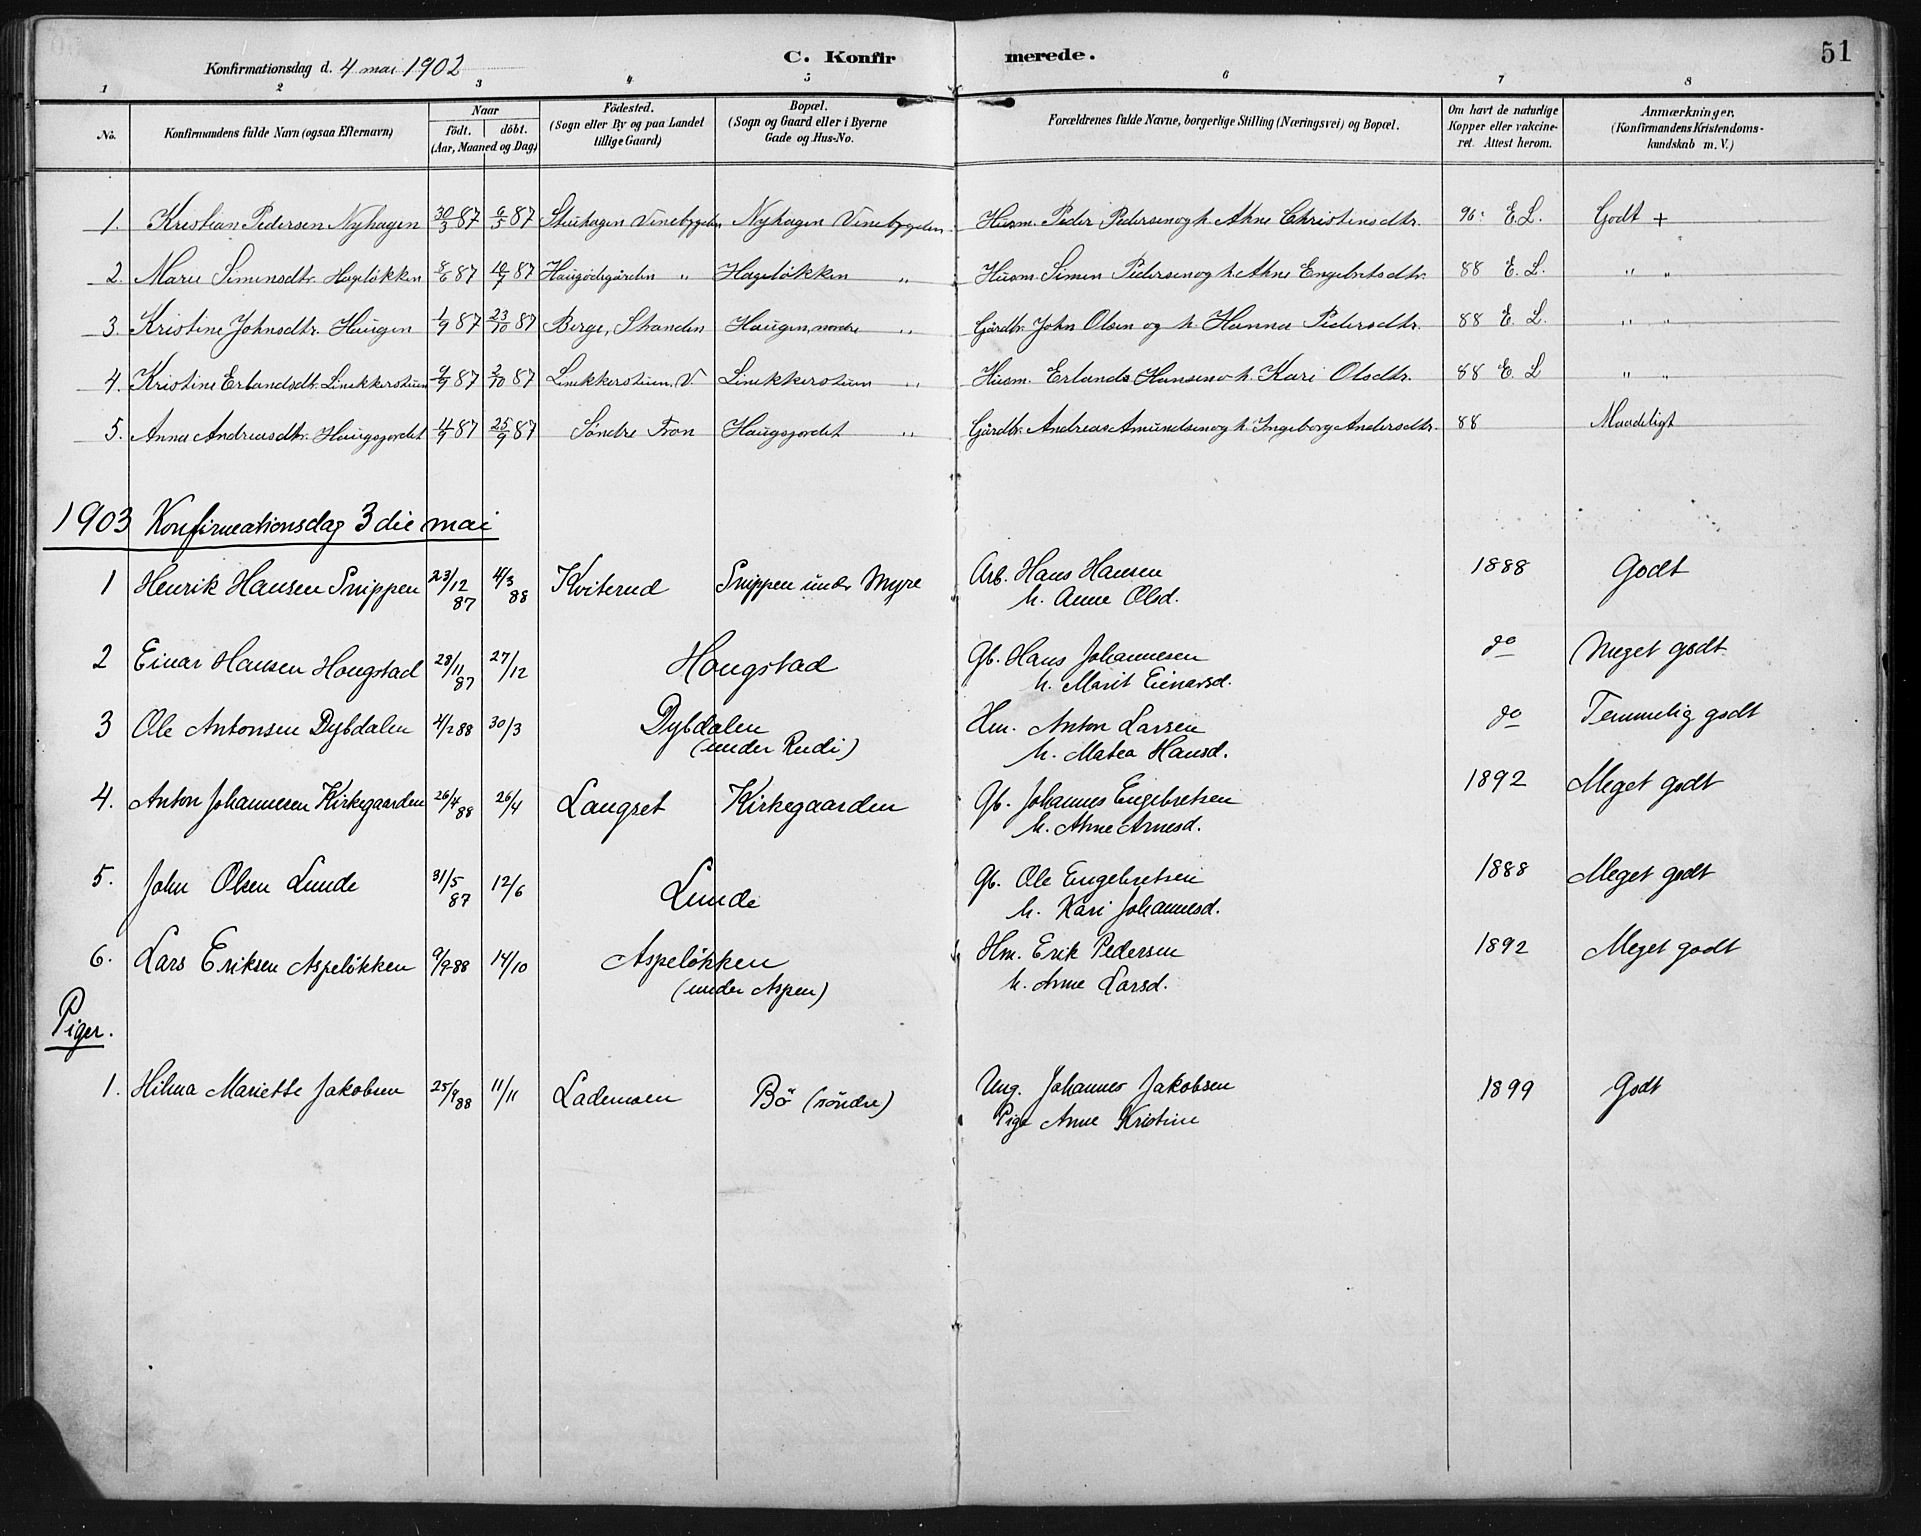 Konfirmationsdag d. 4 mai 1902 C. Konfirmerede. 51
1 2 3 4 5 6 7 8
No. Konfirmandens fulde Navn (ogsaa Efternavn) Naar födt. döbt. (Aar, Maaned og Dag) Födested. (Sogn eller By og paa Landet tillige Gaard) Bopæl. (Sogn og Gaard eller i Byerne Gade og Hus-No. Forældrenes fulde Navne, borgerlige Stilling (Næringsvei) og Bopæl. Om havt de naturlige Kopper eller vakcineret. Attest herom. Anmærkninger. (Konfirmandens Kristendomskundskab m. V.)
1. Kristian Pedersen Nyhagen 30/3 87 6/5 87 Vinebygden Nyhagen Vinebygden Husm. Peder Pedersen og h. Ahne Christensdtr. 96: E. L. Godt +
2. Marie Simensdtr. Hageløkken 8/6 87 10/7 87 Haugødegården " Hageløkken " Husm. Simen Pedersen og h. Ahne Engebretsdtr. 88 E. L. " "
3. Kristine Johnsdtr. Haugen 1/9 87 23/10 87 Berge, Stranden Haugen, nordre " Gårdbr. John Olsen og h. Hanna Pedersdtr. 88 E. L. " "
4. Kristine Erlandsdtr. Linekkerstuen 9/9 87 2/10 87 Linekkerstuen, V. Linekkerstuen " Husm. Erlands Hansen o h. Kari Olsdtr. 88 E. L " "
5. Anna Andreasdtr. Haugsjordet 4/9 87 25/9 87 Söndre Fron Haugsjordet " Gårdbr. Andreas Amundsen og h. Ingeborg Andersdtr. 88 Maadeligt
1903 Konfirmationsdag 3die mai
1 Henrik Hansen Snippen 23/12 87 4/3 88 Kviterud Snippen under Myre Arb. Hans Hansen 1888 Godt
h. Anne Olsd.
2 Einar Hansen Hougstad 28/11 87 27/12 Hougstad Gb. Hans Johannesen do Meget godt
h. Marit Einarsd.
3 Ole Antonsen Dybdalen 4/2 88 30/3 Dybdalen Hm. Anton Larsen do Temmelig godt
(under Rudi) h. Matea Hansd.
4. Anton Johannesen Kirkegaarden 26/4 88 26/4 Langset Kirkegaarden Gb. Johannes Engebretsen 1892 Meget godt
h. Ahne Arnesd.
5. John Olsen Lunde 31/5 87 12/6 Lunde Gb. Ole Engebretsen 1888 Meget godt
h. Kari Johannesd.
6. Lars Eriksen Aspeløkken 9/9 88 14/10 Aspeløkken Hm. Erik Pedersen 1892 Meget godt
(under Aspen) h. Anne Larsd.
Piger.
1. Hilma Mariette Jakobsen 25/9 88 11/11 Lademoen Bö (söndre) Ung. Johannes Jakobsen 1899 Godt
Pige Anne Kristine